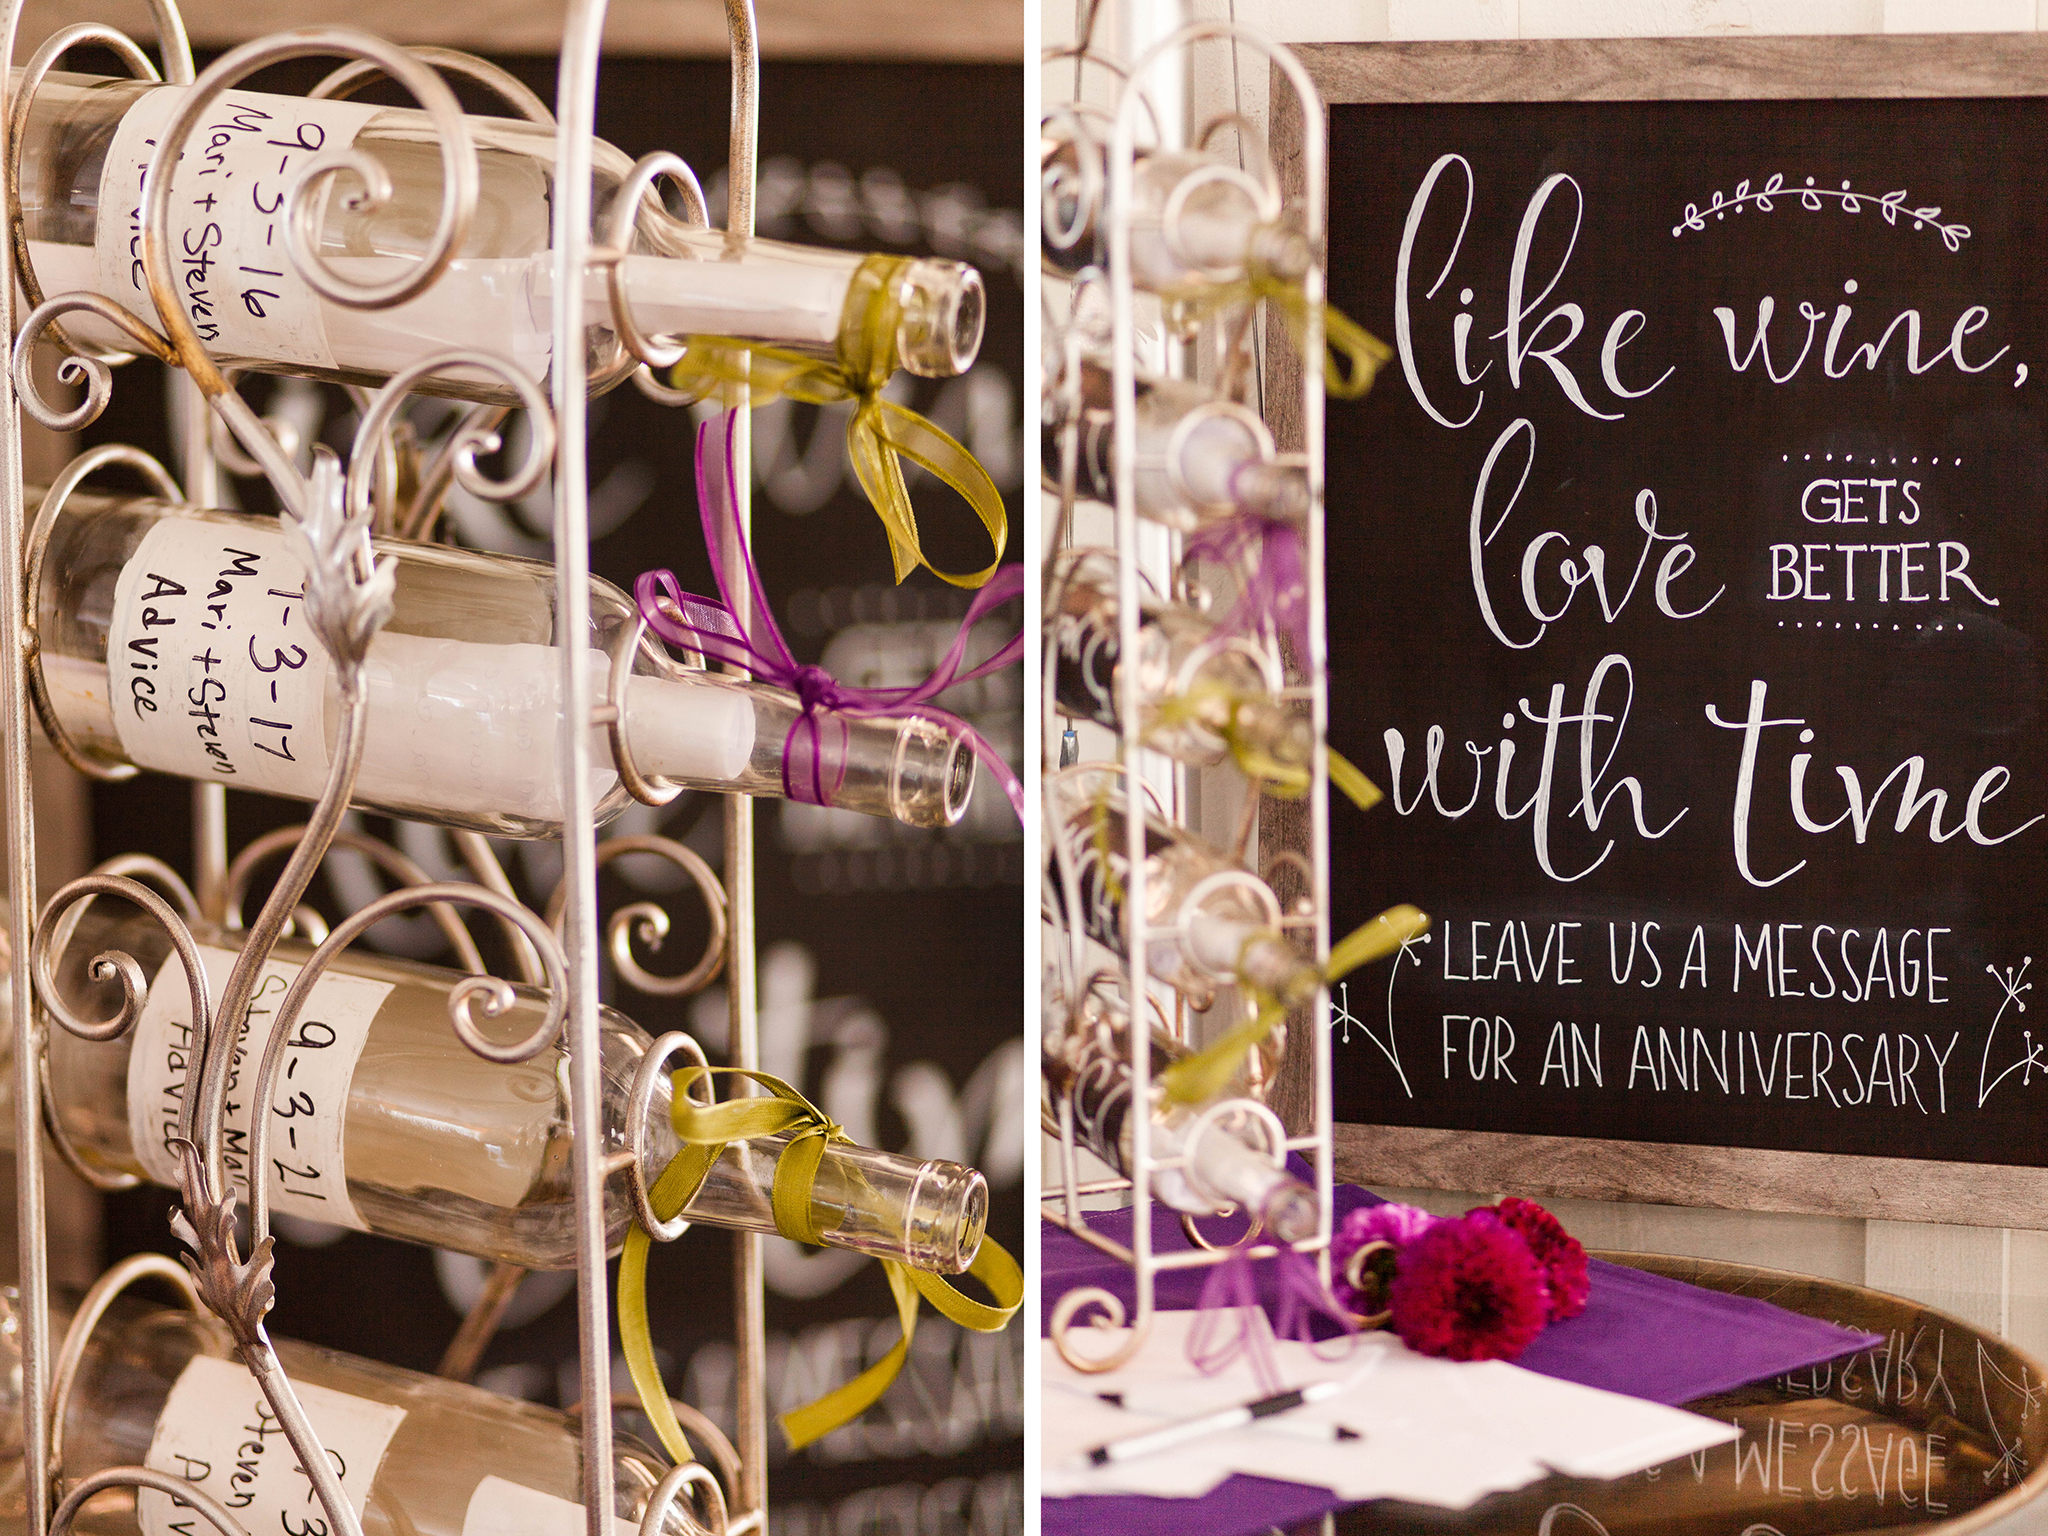 9-3-16
Mari + Steven
Advice
9-3-17
Mari + Steven
Advice
9-3-21
Steven + Mari
Advice
Steven
like wine,
love
GETS
BETTER
with time
LEAVE US A MESSAGE
FOR AN ANNIVERSARY